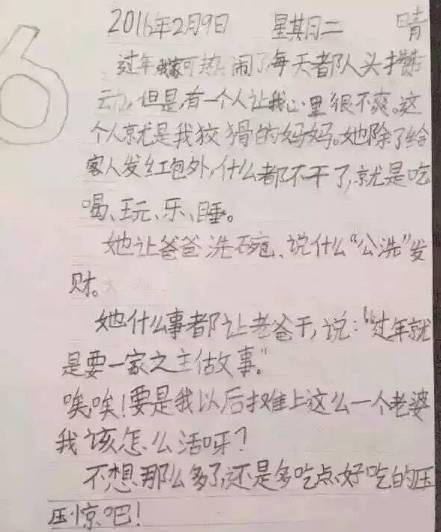 6
2016年2月9日 星其月二 晴
过年我家可热闹了,每天都人头攒
动,但是,有一个人让我心里很不爽。这
个人就是我狡猾的妈妈。她除了给
客人发红包外,什么都不干了,就是吃
喝、玩、乐、睡。
她让爸爸洗碗、说什么“公洗”发
财。
她什么事都让老爸干,说:“过年就
是要一家之主做故事。”
唉唉!要是我以后摊上这么一个老婆
我该怎么活呀?
不想那么多了,还是多吃点好吃的压
压惊吧!